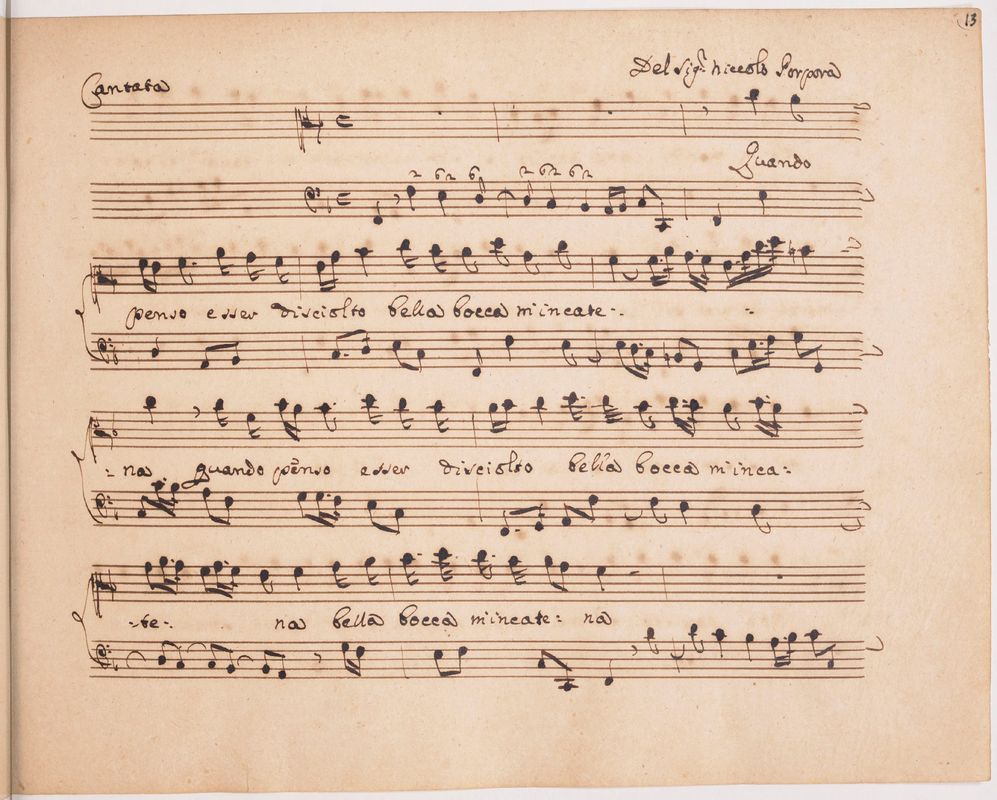 13
Del Sig.r Niccolò Porpora
Cantata
Quando
penso esser disciolto bella bocca m'incate-.
:na quando penso esser disciolto bella bocca m'inca:
-te-. na bella bocca m'incate: na